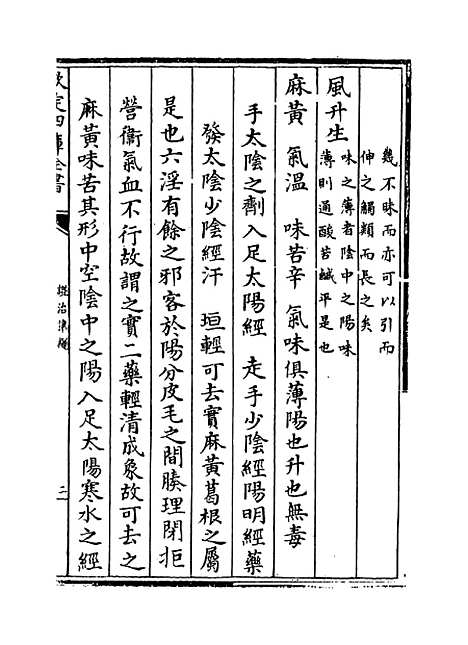 幾不昧而亦可以引而
伸之觸類而長之矣
風升生
味之薄者陰中之陽味
薄則通酸苦鹹平是也
麻黃　氣溫　味苦辛　氣味俱薄陽也升也無毒
手太陰之劑入足太陽經　走手少陰經陽明經藥
發太陰少陰經汗　垣輕可去實麻黃葛根之屬
是也六淫有餘之邪客於陽分皮毛之間腠理閉拒
營衞氣血不行故謂之實二藥輕清成象故可去之
麻黃味苦其形中空陰中之陽入足太陽寒水之經
欽定四庫全書
二